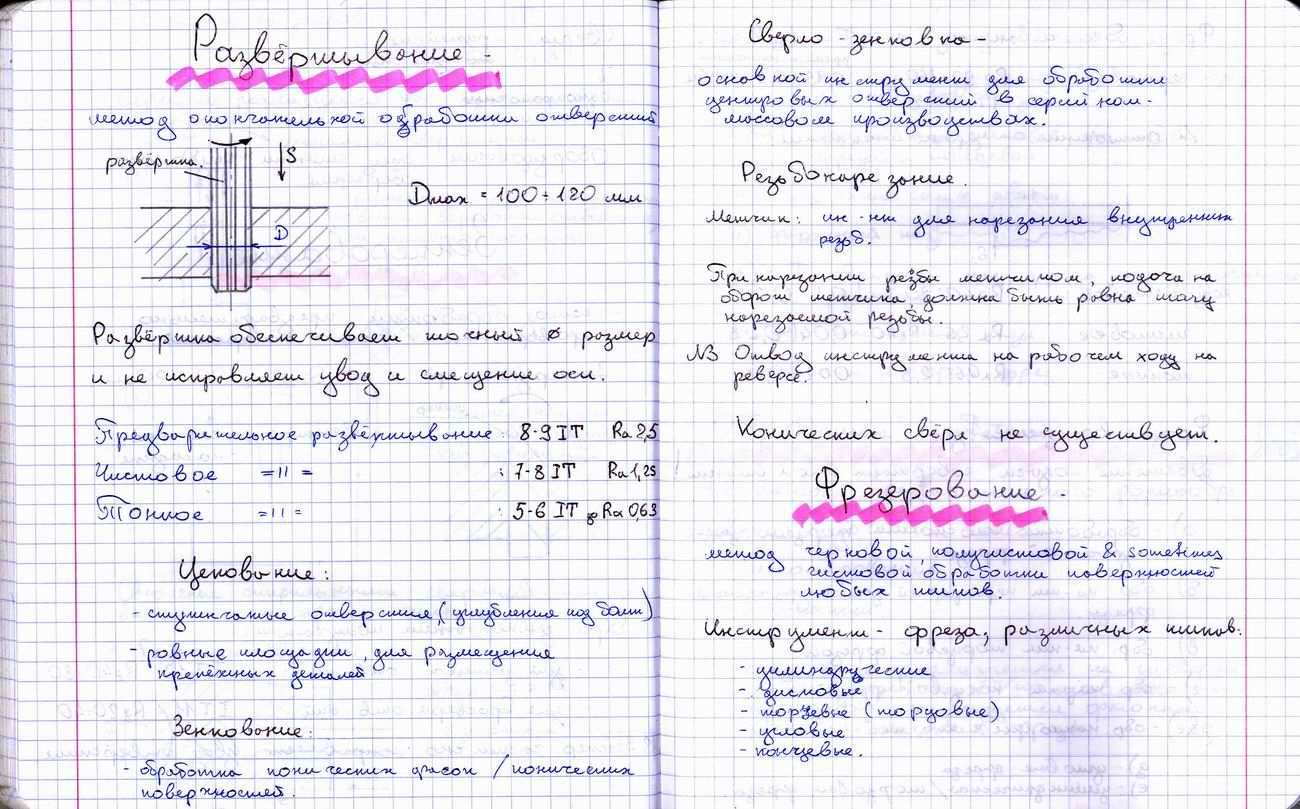 Развёртывание -
метод окончательной обработки отверстий
развёртка.
S
Dmax = 100÷120 мм
D
Развёртка обеспечивает точный ⌀ размер
и не исправляет увод и смещение оси.
Предварительное развёртывание: 8-9 IT Ra 2,5
Чистовое =11= : 7-8 IT Ra 1,25
Тонкое =11= : 5-6 IT Ra 0,63
Цекование:
- ступенчатые отверстия, (углубления под болт)
- ровные площадки, для размещения
крепёжных деталей
Зенкование:
- обработка конических фасок / конических
поверхностей.
Сверло - зенковка -
основной инструмент для обработки
центровых отверстий в серийном-
массовом производствах.
Резьбонарезание.
Метчик: ин-нт для нарезания внутренних
резьб.
При нарезании резьбы метчиком, подача на
оборот метчика, должна быть равна шагу
нарезаемой резьбы.
NB Отвод инструмента на рабочем ходу на
реверсе.
Конических свёрл не существует.
Фрезерование -
метод черновой, получистовой & sometimes
чистовой обработки поверхностей
любых типов.
Инструмент - фреза, различных типов:
- цилиндрические
- дисковые
- торцевые (торцовые)
- угловые
- концевые.